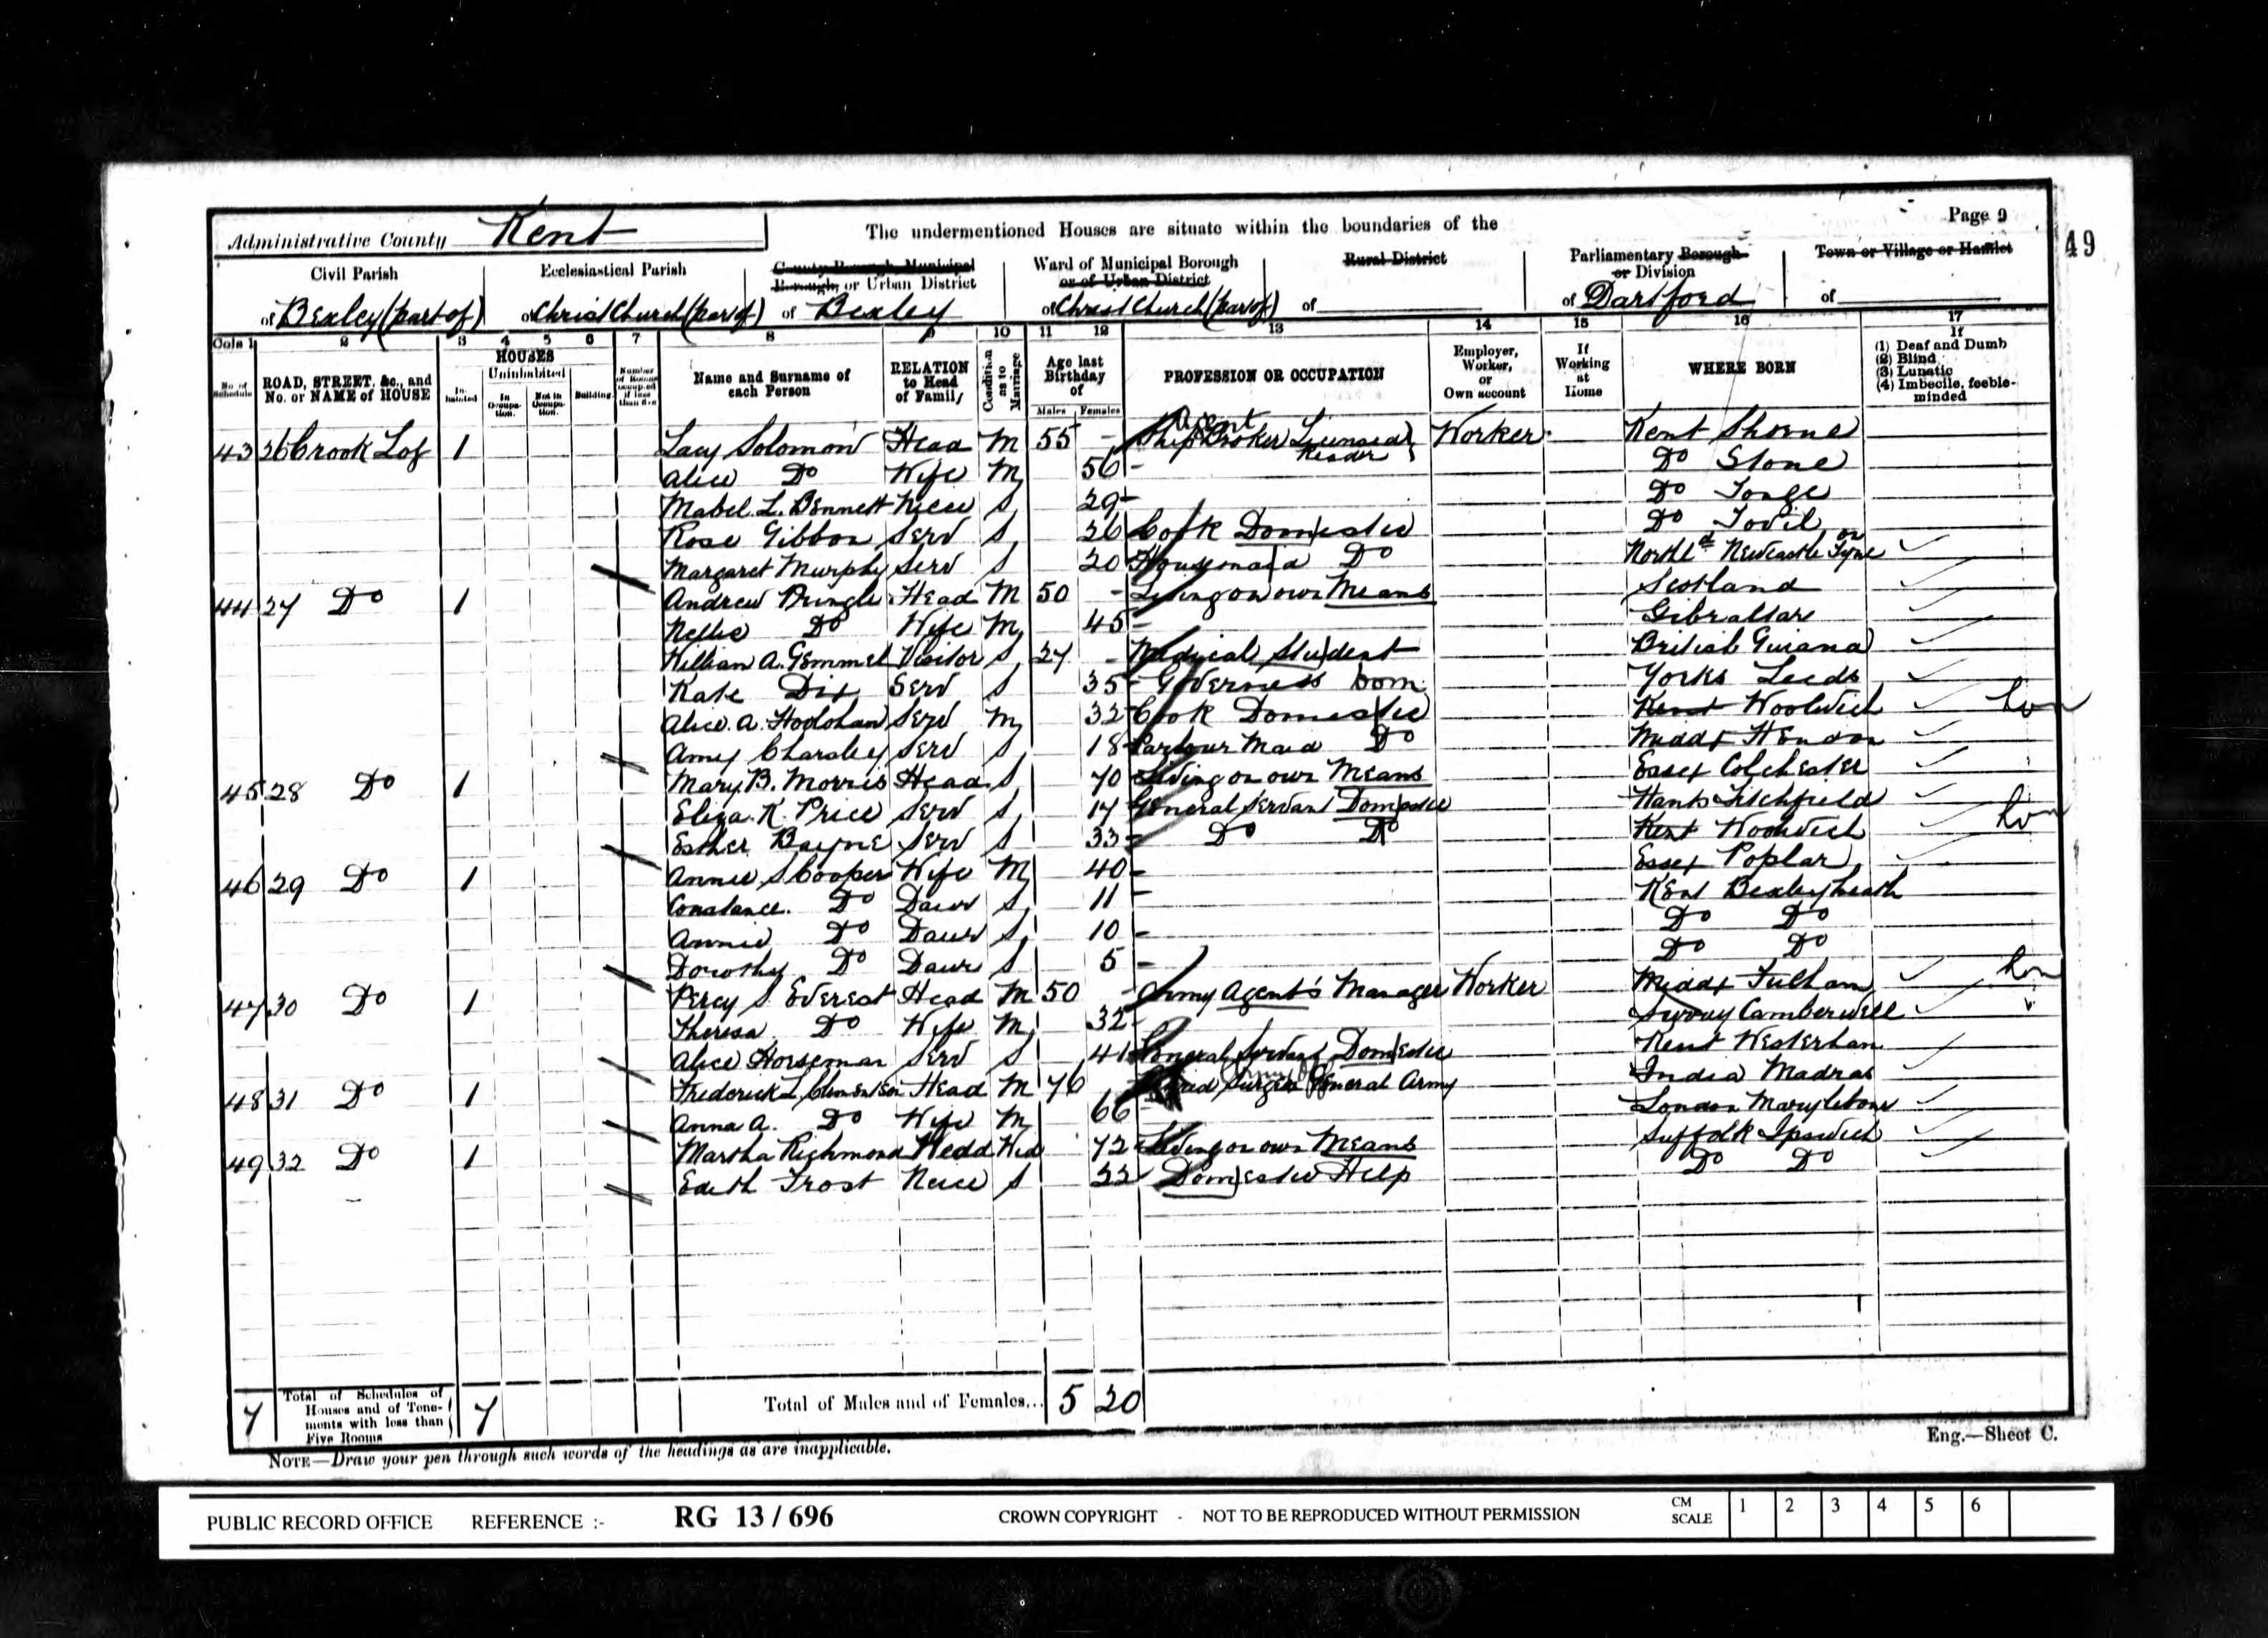 Page 9
49
Administrative County Kent
The undermentioned Houses are situate within the boundaries of the
Civil Parish
of Bexley (part of)
Ecclesiastical Parish
of Christ Church (part of)
County Borough, Municipal Borough, or Urban District
of Bexley
Ward of Municipal Borough or of Urban District
of Christ Church (part of)
Rural District
of
Parliamentary Borough or Division
of Dartford
Town or Village or Hamlet
of
Cols 1 2 3 4 5 6 7 8 9 10 11 12 13 14 15 16 17
No. of Schedule
ROAD, STREET, &c., and No. or NAME of HOUSE
HOUSES
In-habited
Uninhabited
In Occupa-tion.
Not in Occupa-tion.
Building.
Number of Rooms occupied if less than five
Name and Surname of each Person
RELATION to Head of Family
Condition as to Marriage
Age last Birthday of
Males Females
PROFESSION OR OCCUPATION
Employer, Worker, or Own account
If Working at Home
WHERE BORN
If
(1) Deaf and Dumb
(2) Blind
(3) Lunatic
(4) Imbecile, feeble-minded
43 26 Crook Log 1 Lacy Solomon Head M 55 - Agent Ship Broker Licensed Reader Worker Kent Shorne
Alice Do Wife M 56 - Do Stone
Mabel L. Bennett Niece S 29 - Do Tonge
Rose Gibbon Serv S 26 Cook Domestic Do Tovil
Margaret Murphy Serv S 20 Housemaid Do Northd Newcastle on Tyne
44 27 Do 1 Andrew Pringle Head M 50 - Living on own Means Scotland
Nellie Do Wife M 45 - Gibraltar
William A. Gemmel Visitor S 27 - Medical Student British Guiana
Kate Dix Serv S 35 - Governess Dom Yorks Leeds
Alice A. Hoolohan Serv M 32 Cook Domestic Kent Woolwich Lon
Amy Charsley Serv S 18 Parlour Maid Do Middx Hendon
45 28 Do 1 Mary B. Morris Head S 70 Living on own Means Essex Colchester
Eliza K. Price Serv S 17 General Servant Domestic Hants Litchfield
Esther Bayne Serv S 33 - Do Do Kent Woolwich Lon
46 29 Do 1 Annie S Cooper Wife M 40 - Essex Poplar
Constance Do Daur S 11 - Kent Bexleyheath
Annie Do Daur S 10 - Do Do
Dorothy Do Daur S 5 - Do Do
47 30 Do 1 Percy S. Everest Head M 50 - Army Agent's Manager Worker Middx Fulham Lon
Theresa Do Wife M 32 - Surrey Camberwell
Alice Horseman Serv S 41 General Servant Domestic Kent Westerham
48 31 Do 1 Frederick L. Head M 76 Surgeon General Army India Madras
Anna A. Do Wife M 66 - London Marylebone
49 32 Do 1 Martha Richmond Head Wid 72 Living on own Means Suffolk Ipswich
Edith Frost Neice S 22 Domestic Help Do Do
7 Total of Schedules of Houses and of Tene-ments with less than Five Rooms 7 Total of Males and of Females... 5 20
NOTE—Draw your pen through such words of the headings as are inapplicable.
Eng.—Sheet C.
PUBLIC RECORD OFFICE REFERENCE :- RG 13 / 696 CROWN COPYRIGHT - NOT TO BE REPRODUCED WITHOUT PERMISSION CM SCALE 1 2 3 4 5 6